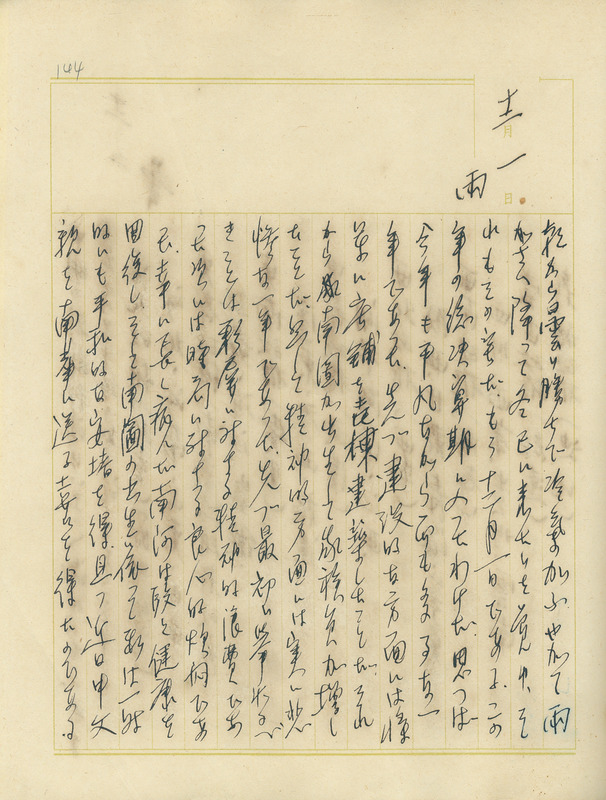 144
十二月一日
雨
朝から曇り勝ちで冷気加ふ。やがて雨
が さへ降って冬已に来たりを覚ゆ。そ
れもその筈だ。もう十二月一日である。この
年の総決算期に入ったわけだ。思へば
今年も平凡ながら而も多事な一
年であった。先づ建設的な方面には
草に店舗を壱棟建築したことだ。それ
から 南圖が出生して家族員が増し
たことだ。然し精神的方面には実に悲
惨な一年であった。先づ最初に挙ぐるべ
きことは 対する精神的浪費であ
る。次には時局に対する良心的煩悶であ
る。幸に長く病んだ南河は段々健康を
回復し、そして南圖の出生に依って一時
的にも平和的な安堵を得、且つ近日中父
親を南華に送る喜びを得たのである。